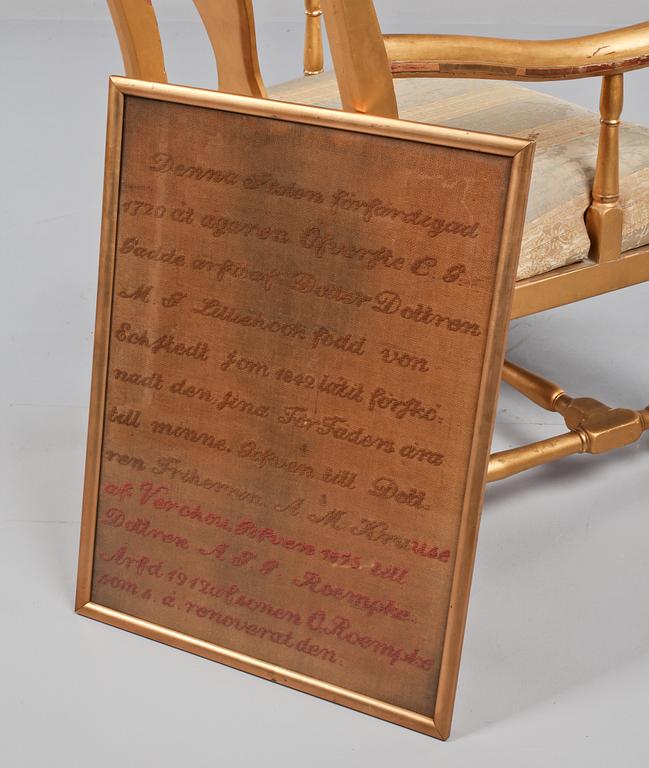 Denna Stolen förfärdigad
1720 åt ägaren Öfverste C. G.
Gadde ärfd af Dotter Dottren
M. G Lilliehöök född von
Echstedt som 1842 låtit försko:
nadt den sina ForFäders ära
till minne. Gifven till Dott-
ren Friherrin. A M Kruuse
af Verchou Gifven 1875 till
Dottren A F G. Roempke.
Ärfd 1912 af sonen O. Roempke
som s. å. renoverat den.